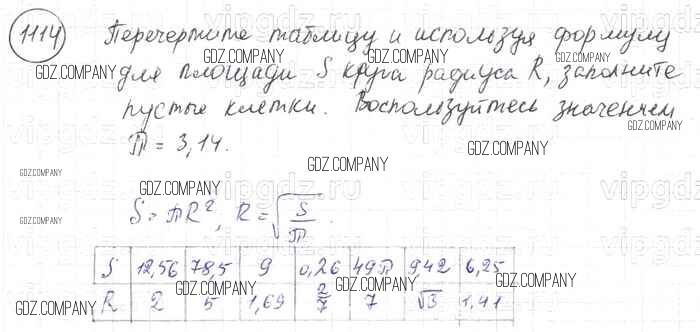 1114 Перечертите таблицу и используя формулу
для площади S круга радиуса R, заполните
пустые клетки. Воспользуйтесь значением
π = 3,14.
S = πR², R = √(S/π).
S 12,56 78,5 9 0,26 49π 9,42 6,25
R 2 5 1,69 2/7 7 √3 1,41
GDZ.COMPANY
GDZ.COMPANY
GDZ.COMPANY
GDZ.COMPANY
GDZ.COMPANY
GDZ.COMPANY
GDZ.COMPANY
GDZ.COMPANY
GDZ.COMPANY
GDZ.COMPANY
GDZ.COMPANY
GDZ.COMPANY
GDZ.COMPANY
GDZ.COMPANY
vipgdz.ru